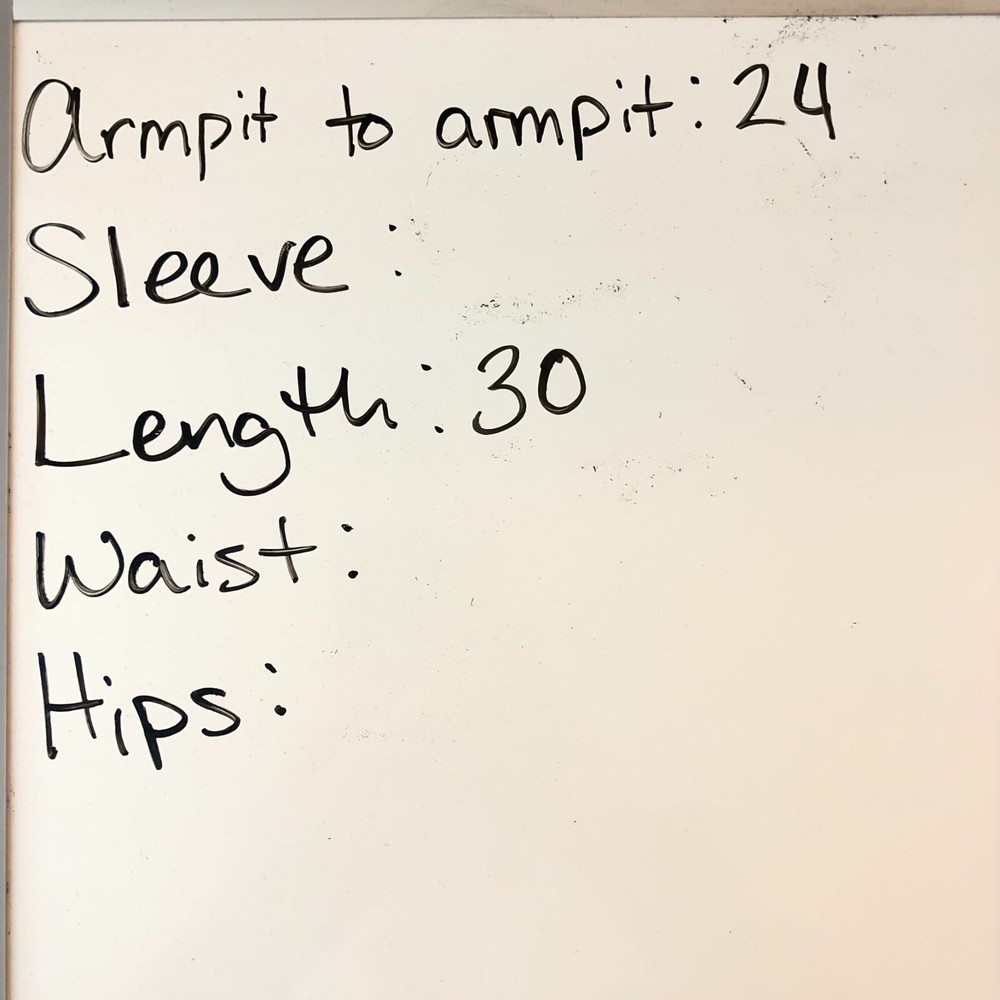 Armpit to armpit: 24
Sleeve:
Length: 30
Waist:
Hips: